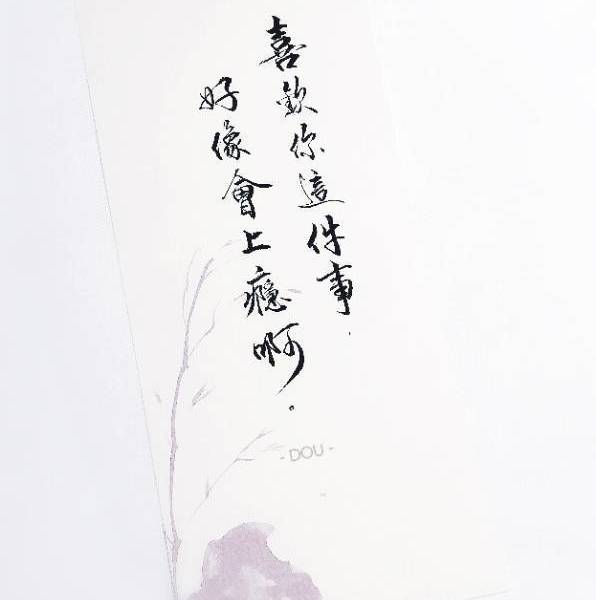 喜欢你這件事.
好像會上癮啊。
-DOU-